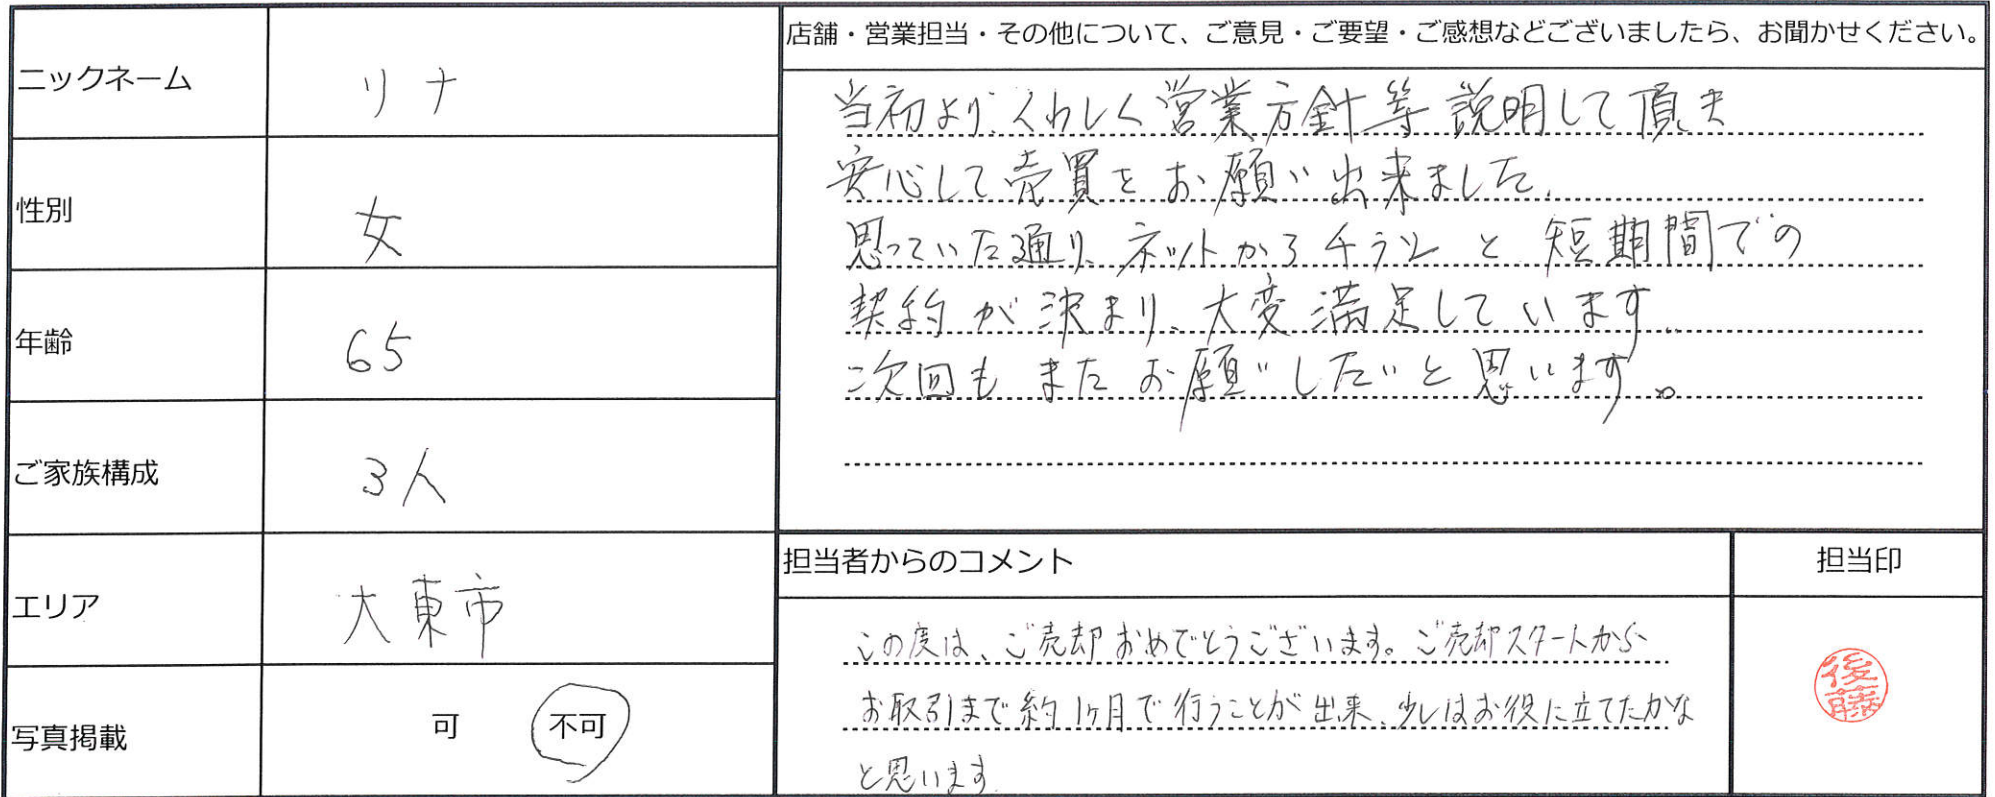 ニックネーム
リナ
性別
女
年齢
65
ご家族構成
3人
エリア
大東市
写真掲載
可
不可
店舗・営業担当・その他について、ご意見・ご要望・ご感想などございましたら、お聞かせください。
当初より、くわしく営業方針等説明して頂き
安心して売買をお願い出来ました。
思っていた通り、ネットからチラシと短期間での
契約が決まり、大変満足しています。
次回もまたお願いしたいと思います。
担当者からのコメント
この度は、ご売却おめでとうございます。ご売却スタートから
お取引まで約1ヶ月で行うことが出来、少しはお役に立てたかな
と思います
担当印
後藤